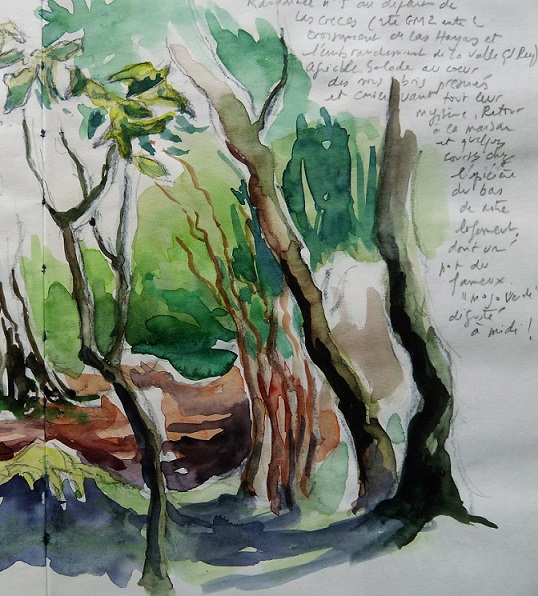 Randonnée n°5 au départ de
Las Creces (rte GM2 entre le
croisement de las Hayas et
l'embranchement de la Valle G. Rey)
agréable balade au cœur
des
et
mystère. Retour
à la maison
et quelques
courses chez
l'épicière
du bas
de notre
logement,
dont un
pot du
fameux
mojo verde
dégusté
à midi !